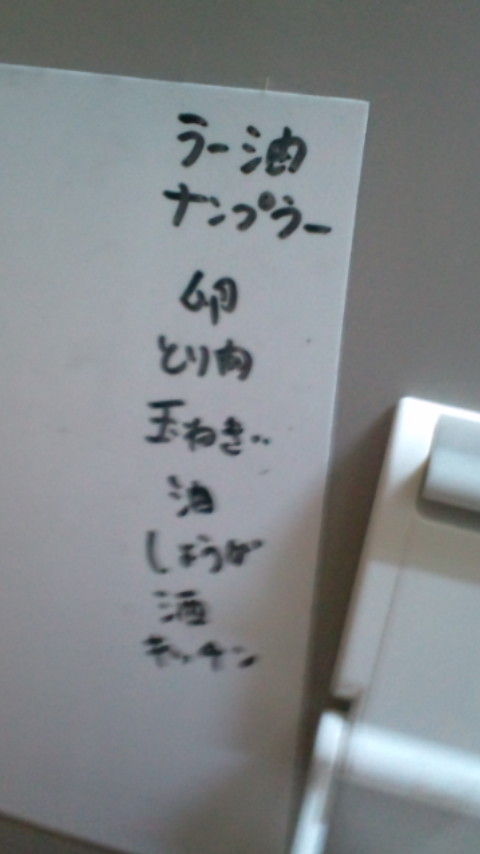 ラー油
ナンプラー
卵
とり肉
玉ねぎ
油
しょうが
酒
キッチン